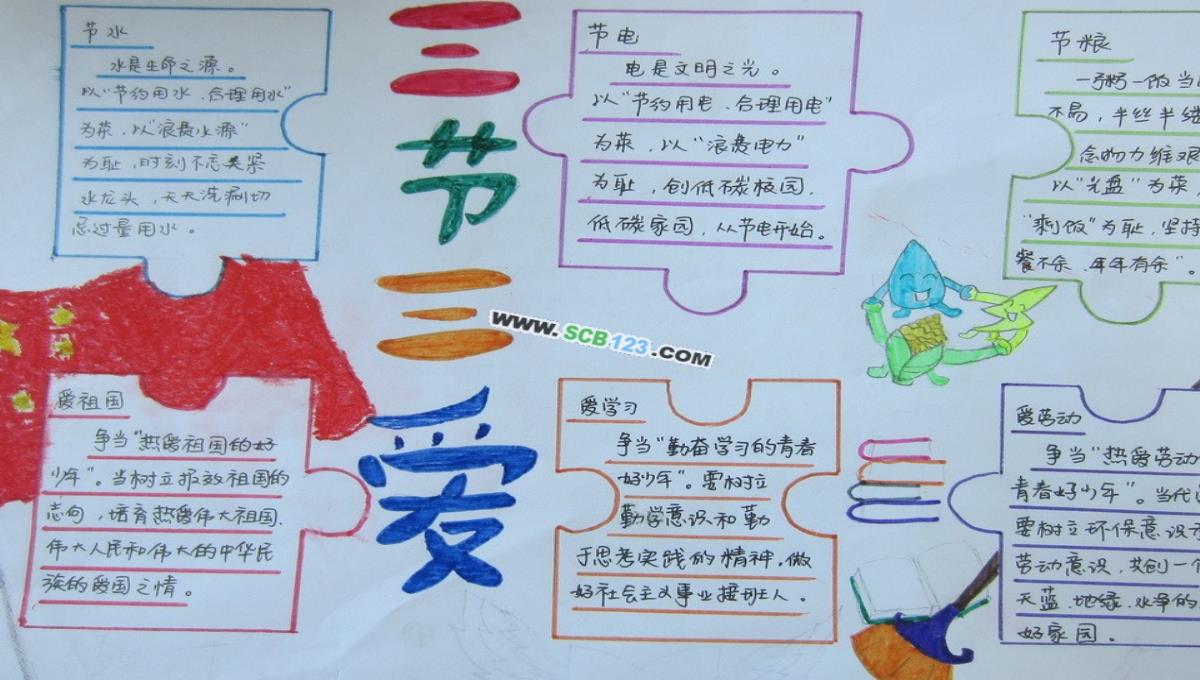 节水
水是生命之源。
以“节约用水、合理用水”
为荣，以“浪费水源”
为耻，时刻不忘关紧
水龙头，天天洗漱切
忌过量用水。
三节三爱
节电
电是文明之光。
以“节约用电、合理用电”
为荣，以“浪费电力”
为耻，创低碳校园，
低碳家园，从节电开始。
节粮
一粥一饭当
不易，半丝半缕
念物力维艰
以“光盘”为荣
“剩饭”为耻，坚持
餐不余，年年有余”。
www.SCB123.COM
爱祖国
争当“热爱祖国的好
少年”。当树立报效祖国的
志向，培育热爱伟大祖国、
伟大人民和伟大的中华民
族的爱国之情。
爱学习
争当“勤奋学习的青春
好少年”。要树立
勤学意识和勤
于思考实践的精神，做
好社会主义事业接班人。
爱劳动
争当“热爱劳动
青春好少年”。当代
要树立环保意识
劳动意识，共创一个
天蓝、地绿、水净的
好家园。